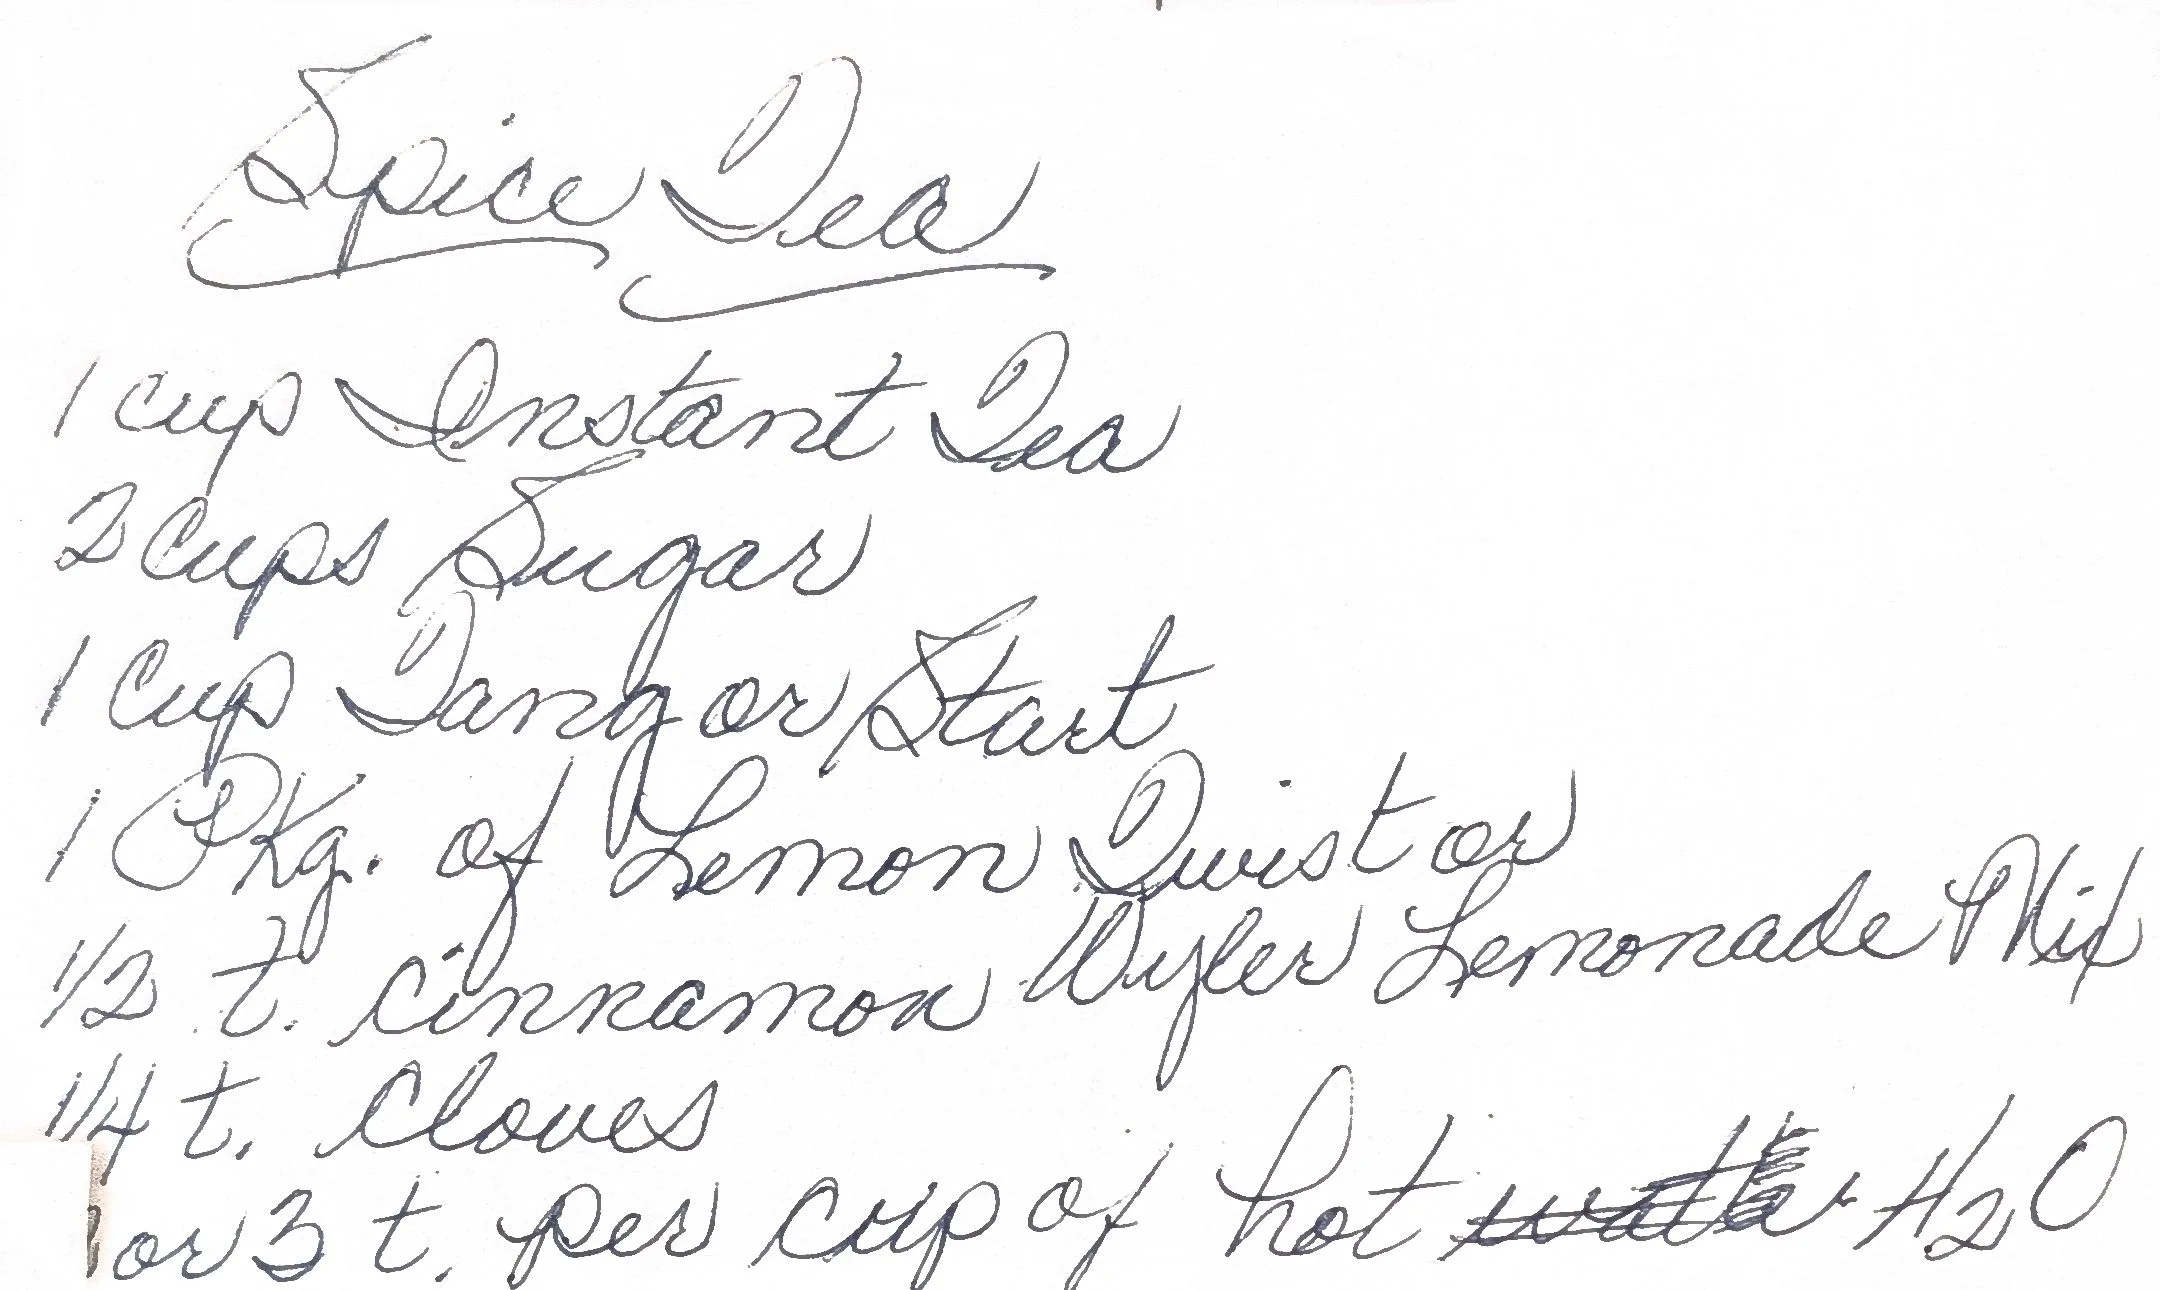 Spice Tea
1 cup Instant Tea
2 Cups Sugar
1 Cup Tang or Start
1 Pkg. of Lemon Twist or
Wyler Lemonade Mix
1/2 t. cinnamon
1/4 t. Cloves
or 3 t. per cup of hot H2O